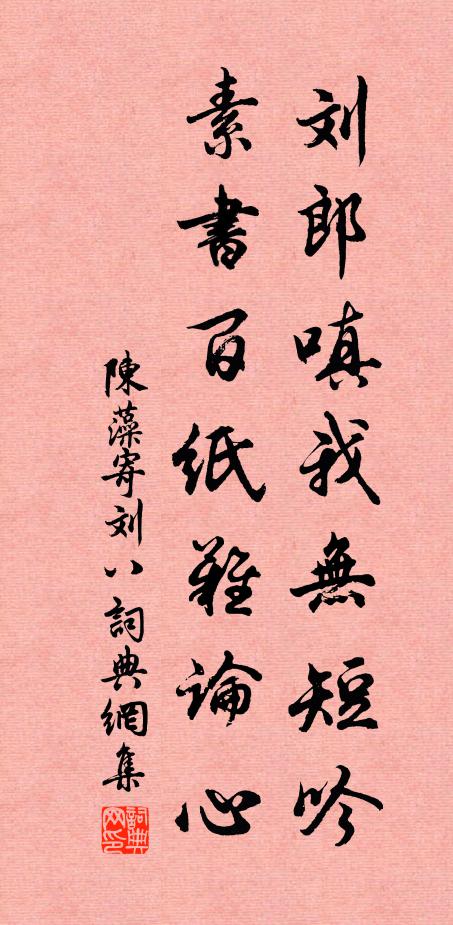 刘郎嗔我無短吟
素書百紙難論心
陳藻寄刘八詞典網集
詞典网印